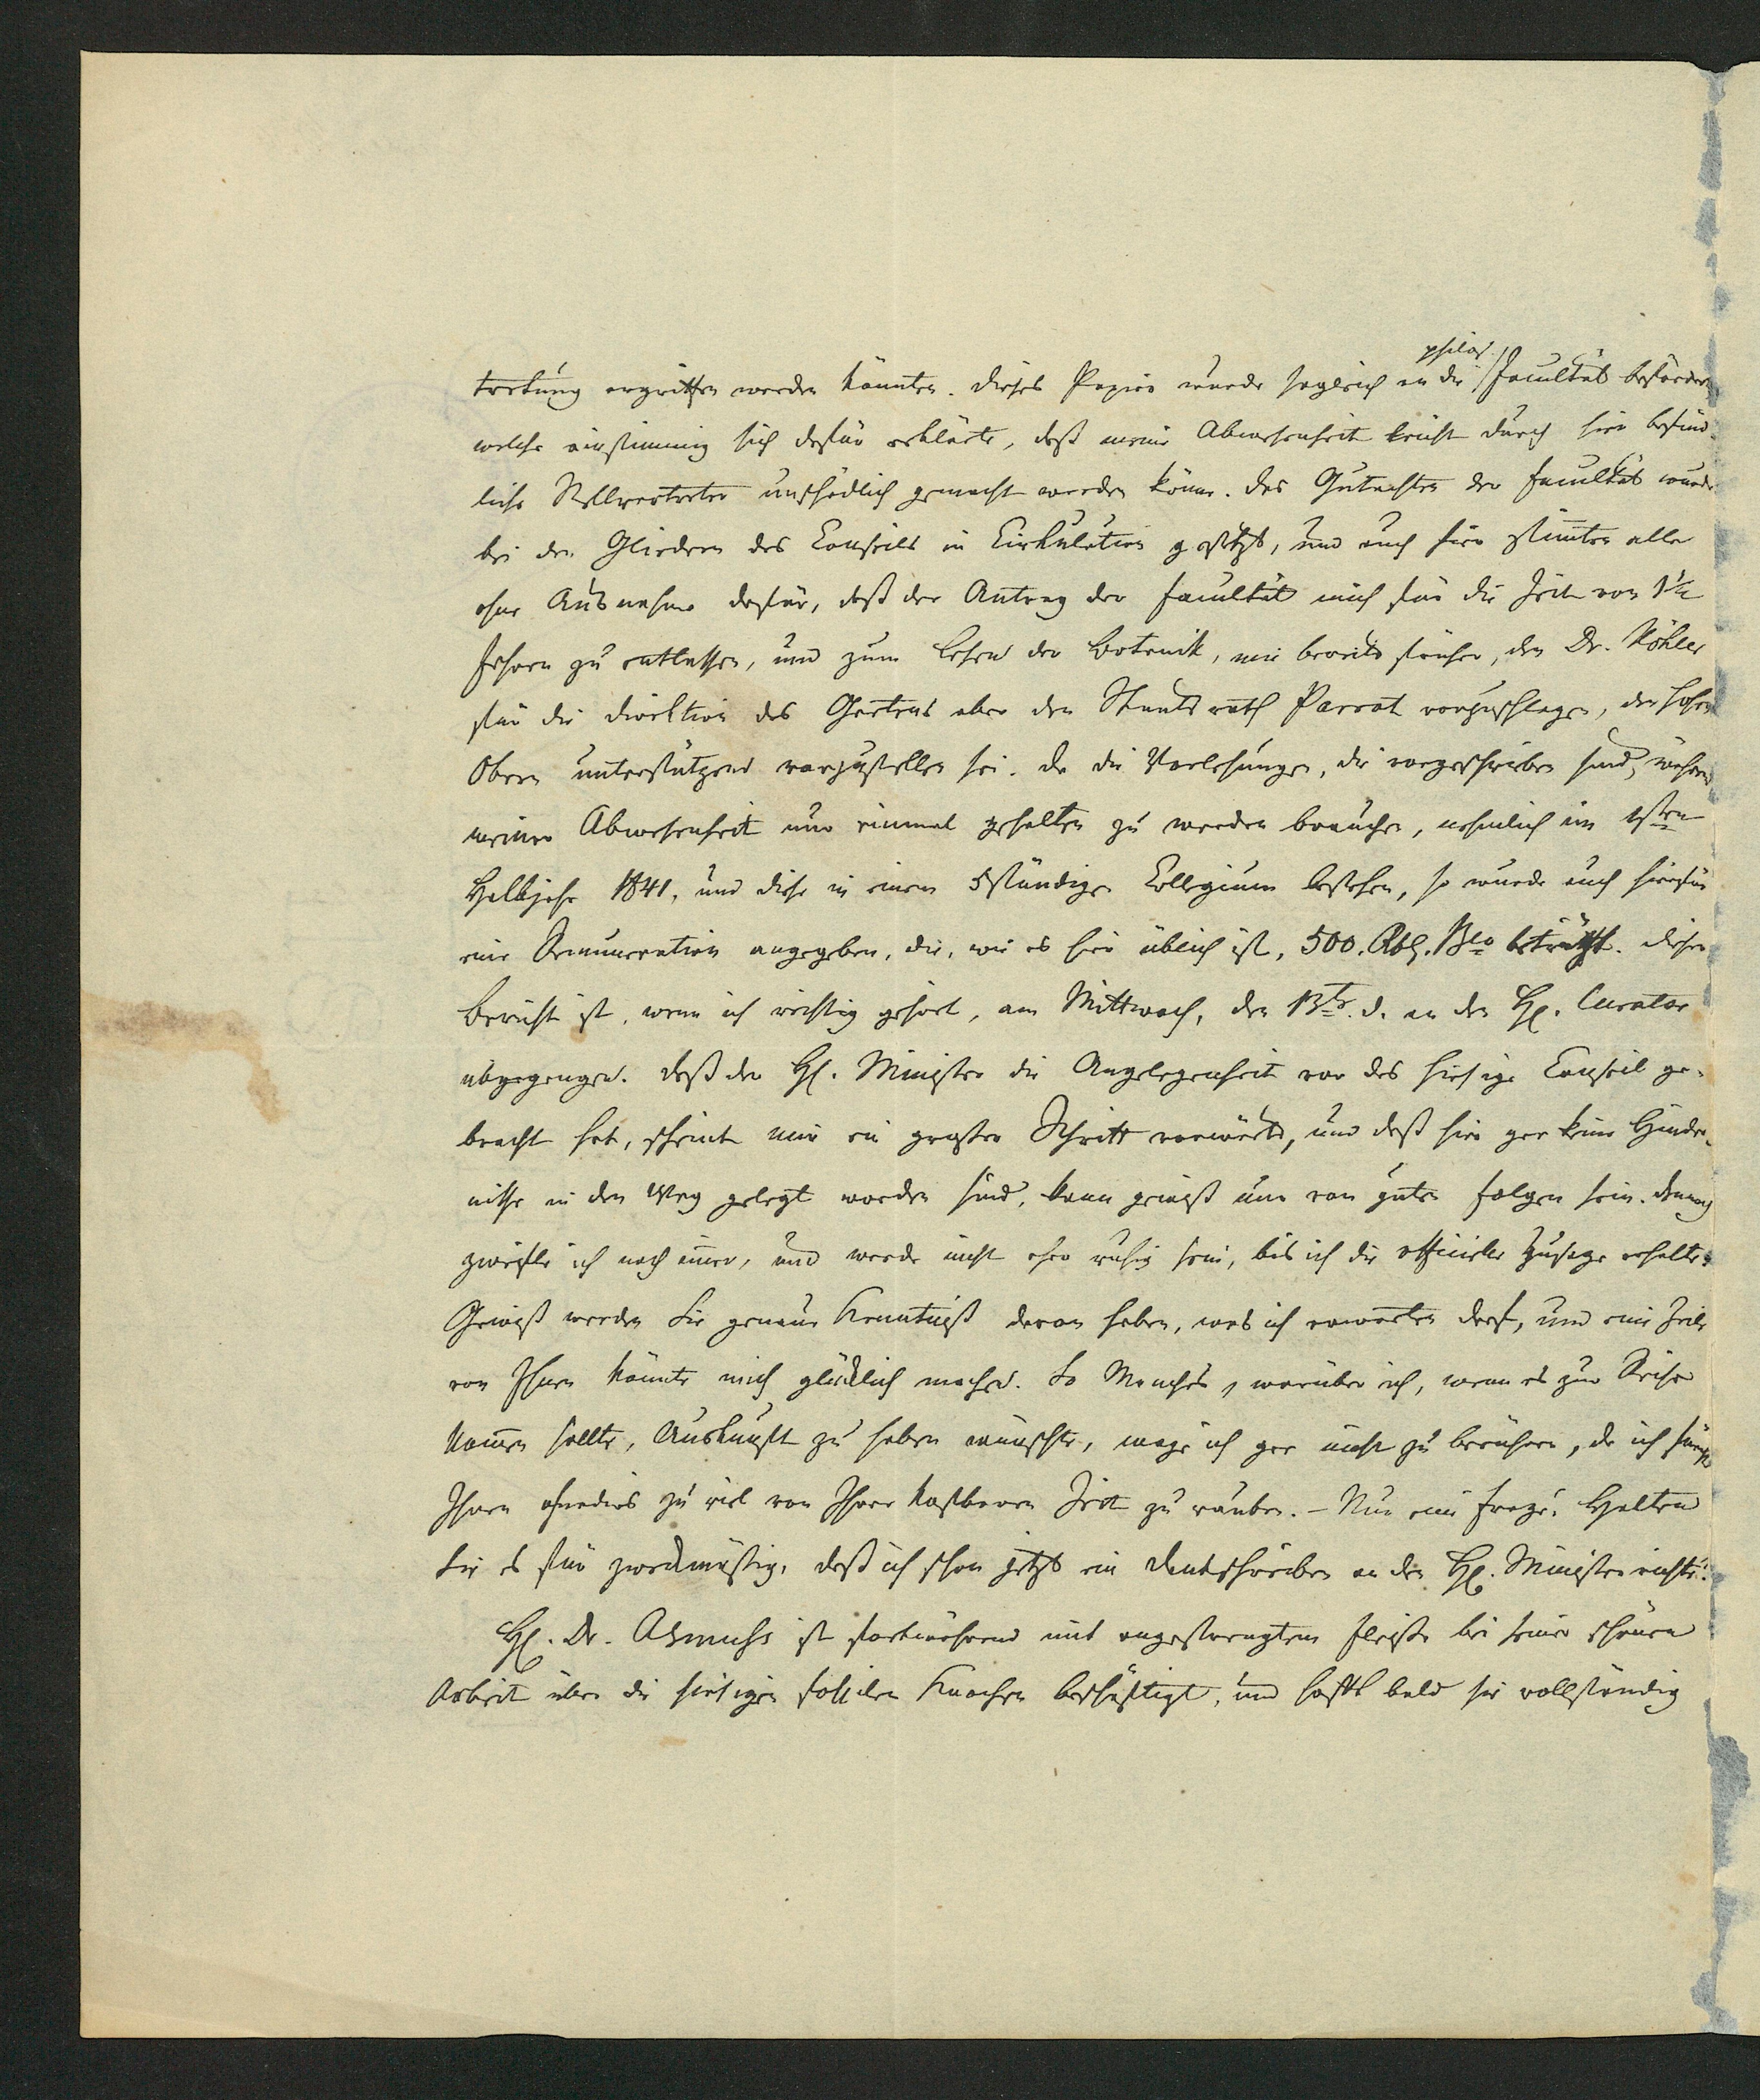 tretung ergriffen werden könnten. Dieses Papier wurde sogleich an die philos. Facultät befördert
welche einstimmig sich dafür erklärte, daß meine Abwesenheit leicht durch hier befind-
liche Stellvertreter unschädlich gemacht werden könne. Das Gutachten der Facultät wurde
bei den Gliedern des Conseils in Cirkulation gesetzt, und auch hier stimten alle
ohne Ausnahme dafür, daß der Antrag der Facultät mich für die Zeit von 1½
Jahren zu entlassen, und zum Lesen der Botanik, wie bereits früher, den Dr. Köhler
für die Direktion des Gartens aber den Staatsrath Parrot vorzuschlagen, den hohen
Obern unterstützend vorzustellen sei. Da die Vorlesungen, die vorgeschrieben sind, während
meiner Abwesenheit nur einmal gehalten zu werden brauchen, nehmlich im 1sten
Halbjahr 1841, und diese in einem 5stündigen Collegium bestehen, so wurde auch hierfür
eine Remuneration angegeben, die, wie es hier üblich ist, 500. Rbl. Bco beträgt. Dieser
Bericht ist, wenn ich richtig gehört, am Mittwoch, den 13ts. d. an den H. Curator
abgegangen. Daß der H. Minister die Angelegenheit vor das hiesige Conseil ge-
bracht hat, scheint mir ein großer Schritt vorwärts, und daß hier gar keine Hinder-
nisse in den Weg gelegt worden sind, kann gewiß nur von guten Folgen sein. Dennoch
zweifle ich noch immer, und werde nicht eher ruhig sein, bis ich die officielle Zusage erhalte.
Gewiß werden Sie genaue Kenntniß davon haben, was ich erwarten darf, und eine Zeile
von Ihnen könnte mich glücklich machen. So Manches, worüber ich, wenn es zur Reise
kommen sollte, Auskunft zu haben wünschte, wage ich gar nicht zu berühren, da ich fürchte
Ihnen ohnedies zu viel von Ihrer kostbaren Zeit zu rauben. – Nur eine Frage: Halten
Sie es für zweckmäßig, daß ich schon jetzt ein Dankschreiben an den H. Minister richte?
H. Dr. Asmuss ist fortwährend mit angestrengtem Fleiße bei seiner schönen
Arbeit über die hiesigen fossilen Knochen beschäftigt, und hofft bald sie vollständig